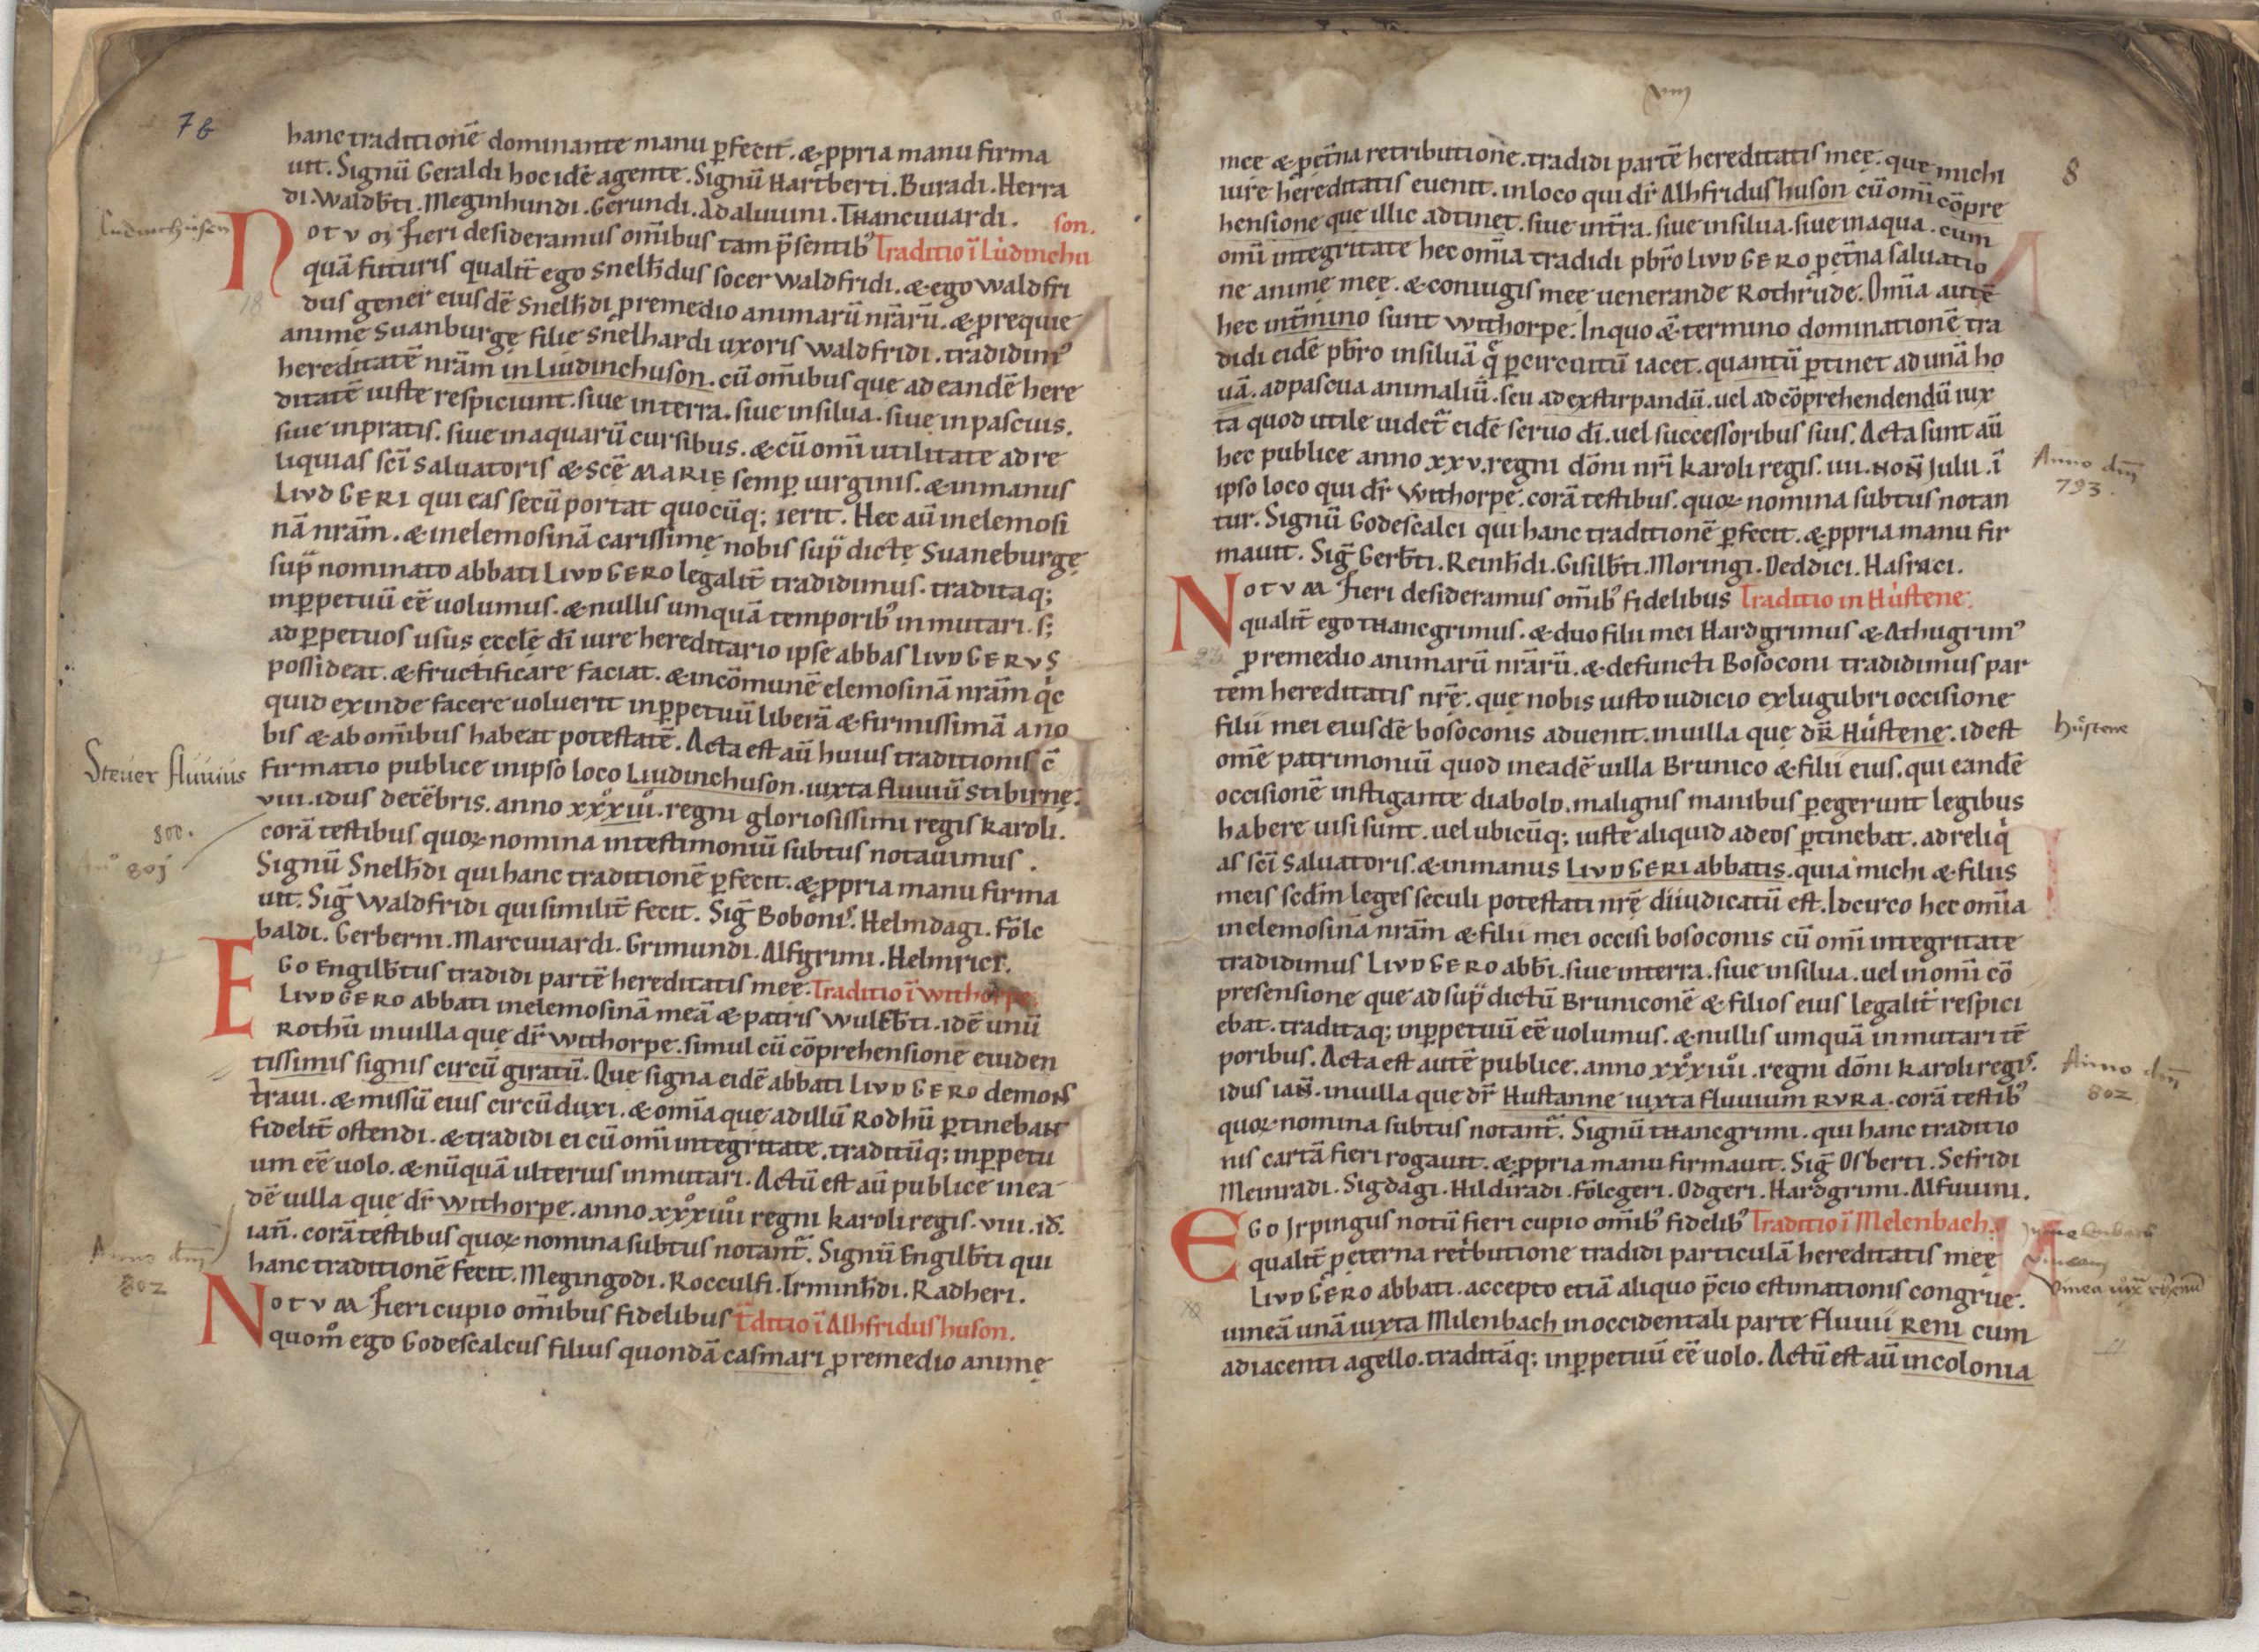 7b
hanc traditionē dominante manu ꝑfecit. & ꝓpria manu firma
uit. Signū Geraldi hoc idē agente. Signū Hartberti. Buradi. Herra
di. Waldb̄ti. Meginhundi. Gerundi. Adaluuini. Thancuuardi.
Ludinchusen
son.
Notum fieri desideramus om̄ibus tam p̄sentib᾽ Traditio ī Ludinchu
quā futuris qualit̄ ego Snelh̄dus socer Waldfridi. & ego Waldfri
18
dus gener eiusdē Snelh̄di pro remedio animarū nr̄arū. & pro requie
animę Suanburgę filie Snelhardi uxoris Waldfridi. tradidim᾽
hereditatē nr̄am in Liudinchuson. cū om̄ibus que ad eandē here
ditatē iuste respiciunt. siue in terra. siue in silua. siue in pascuis.
siue in pratis. siue in aquarū cursibus. & cū om̄i utilitate ad re
liquias sc̄i saluatoris & sc̄e MARIE semꝑ uirginis. & in manus
LIVDGERI qui eas secū portat quocūq; ierit. Hec aū in elemosi
nā nr̄am. & in elemosinā carissimę nobis sup̄ dictę Suaneburgę
sup̄ nominato abbati LIVDGERO legalit̄ tradidimus. traditaq;
inꝑpetuū eē uolumus. & nullis umquā temporib᾽ inmutari. s;
ad ꝑpetuos usus eccłę dī iure hereditario ipse abbas LIVDGERVS
possideat. & fructificare faciat. & in cōmunē elemosinā nr̄am qͥc
quid exinde facere uoluerit inꝑpetuū liberā & firmissimā a no
bis & ab om̄ibus habeat potestatē. Acta est aū huius traditionis c̄
Steuer fluuius
firmatio publice in ipso loco Liudinchuson. iuxta fluuiū Stibirne.
viii. idus decēbris. anno xxxiiii. regni gloriosissimi regis karoli.
800.
corā testibus quoꝝ nomina in testimoniū subtus notauimus.
Anͦ 801
Signū Snelh̄di qui hanc traditionē ꝑfecit. & ꝓpria manu firma
uit. Sig̃ Waldfridi qui similit̄ fecit. Sig̃ Bobonis. Helmdagi. Folc
baldi. Gerberni. Marcuuardi. Grimundi. Alfgrimi. Helmrici.
Ego Engilb̄tus tradidi partē hereditatis mee. Traditio ī Withorpe.
LIVDGERO abbati in elemosinā meā & patris Wulfb̄ti. idē unū
Rothū in uilla que dr̄ Withorpe. simul cū cōprehensionē euiden
tissimis signis circū giratū. Que signa eidē abbati LIVDGERO demons
traui. & missū eius circū duxi. & om̄ia que ad illū Rodhū ꝑtinebant
fidelit̄ ostendi. & tradidi ei cū om̄i integritate. traditūq; inꝑpetu
um eē uolo. & nūquā ulterius inmutari. Actū est aū publice in ea
dē uilla que dr̄ Withorpe. anno xxxiiii regni karoli regis. viii. id̄.
Anno dm̄
ian̄. corā testibus quoꝝ nomina subtus notant̄. Signū Engilb̄ti qui
802
hanc traditionē fecit. Megingodi. Rocculfi. Irminh̄di. Radheri.
Notum fieri cupio om̄ibus fidelibus t̄ditio ī Alhfridushuson.
quom̊ ego Godescalcus filius quondā casmari pro remedio animę
viii
8
mee & ꝑet̄na retributione. tradidi partē hereditatis meę. que michi
iure hereditatis euenit. in loco qui dr̄ Alhfridushuson cū om̄i cōpre
hensione que illic adtinet. siue int̄ra. siue in silua. siue in aqua. cum
om̄i integritate hec om̄ia tradidi pb̄ro LIVDGERO ꝑet̄na saluatio
ne animę meę. & coniugis meę uenerande Rothrude. Om̄ia autē
hec int̄mino sunt Withorpe. In quo &̄ termino dominationē tra
didi eidē pb̄ro in siluā q̄ ꝑ circuitū iacet. quantū ꝑtinet ad unā ho
uā. ad pascua animaliū. seu ad exstirpandū. uel ad cōprehendendū iux
ta quod utile uidet̄ eidē seruo dī. uel successoribus suis. Acta sunt aū
Anno dm̄
hec publice anno xxv. regni dōni nr̄i karoli regis. vii. non̄ Iulii. ī
793.
ipso loco qui dr̄ Withorpe. corā testibus. quoꝝ nomina subtus notan
tur. Signū Godescalci qui hanc traditionē ꝑfecit. & ꝓpria manu fir
mauit. Sig̃ Gerb̄ti. Reinh̄di. Gisilb̄ti. Moringi. Deddici. Hasraci.
Notum fieri desideramus om̄ib᾽ fidelibus Traditio in Hustene.
qualit̄ ego Thancgrimus. & duo filii mei Hardgrimus & Athugrim᾽
23
pro remedio animarū nr̄arū. & defuncti Bosoconi tradidimus par
tem hereditatis nr̄ę. quę nobis iusto iudicio ex lugubri occisione
Hustene
filii mei eiusdē bosoconis aduenit. in uilla que dr̄ Hustene. id est
om̄e patrimoniū quod in eadē uilla Brunico & filii eius. qui eandē
occisionē instigante diabolo. malignis manibus ꝑegerunt legibus
habere uisi sunt. uel ubicūq; iuste aliquid ad eos ꝑtinebat. ad reliqͥ
as sc̄i Saluatoris. & in manus LIVDGERI abbatis. quia michi & filiis
meis scdm̄ leges seculi potestati nr̄ę diiudicatū est. Idcirco hec om̄ia
in elemosinā nr̄am & filii mei occisi bosoconis cū om̄i integritate
tradidimus LIVDGERO abb̄i. siue in terra. siue in silua. uel in om̄i cō
presensione que ad sup̄dictū Bruniconē & filios eius legalit̄ respici
ebat. traditaq; inꝑpetuū eē uolumus. & nullis umquā inmutari tē
poribus. Acta est autē publice. anno xxxiiii. regni dōni karoli regis.
Anno dm̄
802
idus ian̄. in uilla que dr̄ Hustanne iuxta fluuium RVRA. corā testib᾽
quoꝝ nomina subtus notant̄. Signū Thancgrimi. qui hanc traditio
nis cartā fieri rogauit. & ꝓpria manu firmauit. Sig̃ Osberti. Sefridi
Meinradi. Sigdagi. Hildiradi. Folcgeri. Odgeri. Hardgrimi. Alfuuini.
Ego Irpingus notū fieri cupio om̄ib᾽ fidelib᾽ Traditio ī Melenbach.
vineam
qualit̄ pro eterna ret̄butione tradidi particulā hereditatis mee
LIVDGERO abbati. accepto etiā aliquo p̄cio estimationis congrue.
uineā unā iuxta Milenbach in occidentali parte fluuii Reni cum
adiacenti agello. traditāq; inꝑpetuū eē uolo. Actū est aū in colonia